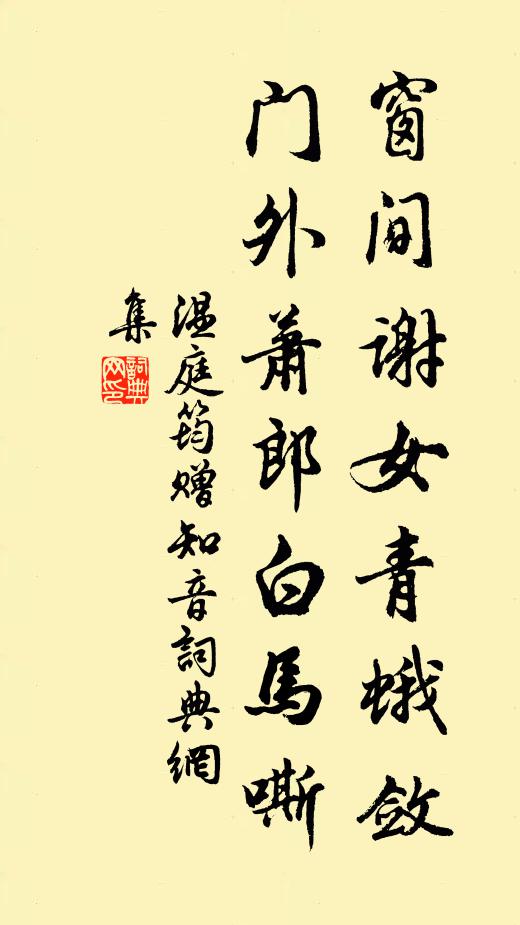 窗间谢女青蛾敛
门外萧郎白马嘶
温庭筠赠知音詞典網
集
詞典网印